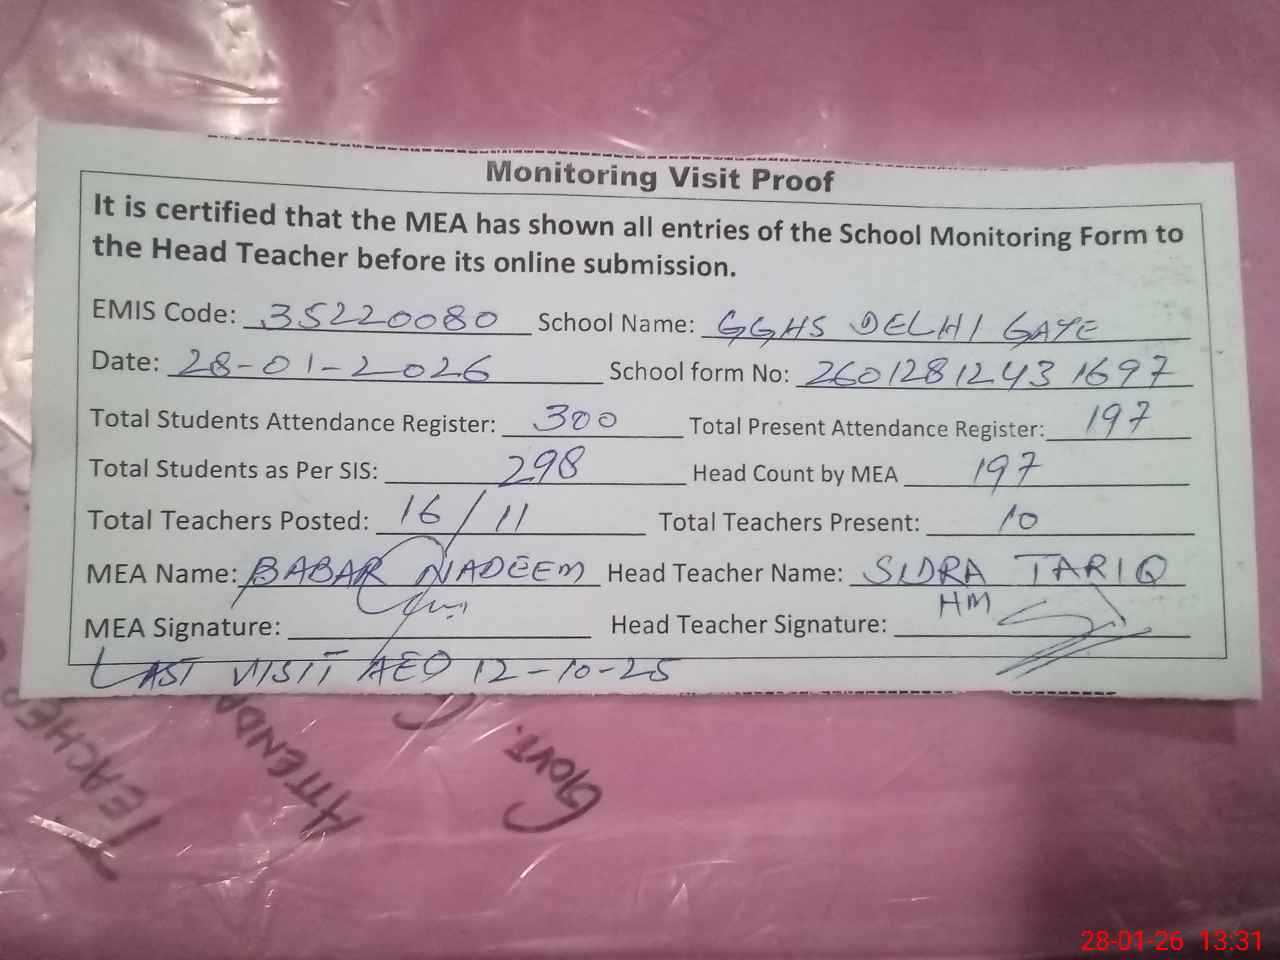 Monitoring Visit Proof
It is certified that the MEA has shown all entries of the School Monitoring Form to
the Head Teacher before its online submission.
EMIS Code: 35220080 School Name: GGHS DELHI GATE
Date: 28-01-2026 School form No: 2601281243 1697
Total Students Attendance Register: 300 Total Present Attendance Register: 197
Total Students as Per SIS: 298 Head Count by MEA 197
Total Teachers Posted: 16/11 Total Teachers Present: 10
MEA Name: BABAR NADEEM Head Teacher Name: SIDRA TARIQ
HM
MEA Signature: Head Teacher Signature:
LAST VISIT AEO 12-10-25
TEACHER
ATTENDA
GOVT.
28-01-26 13:31